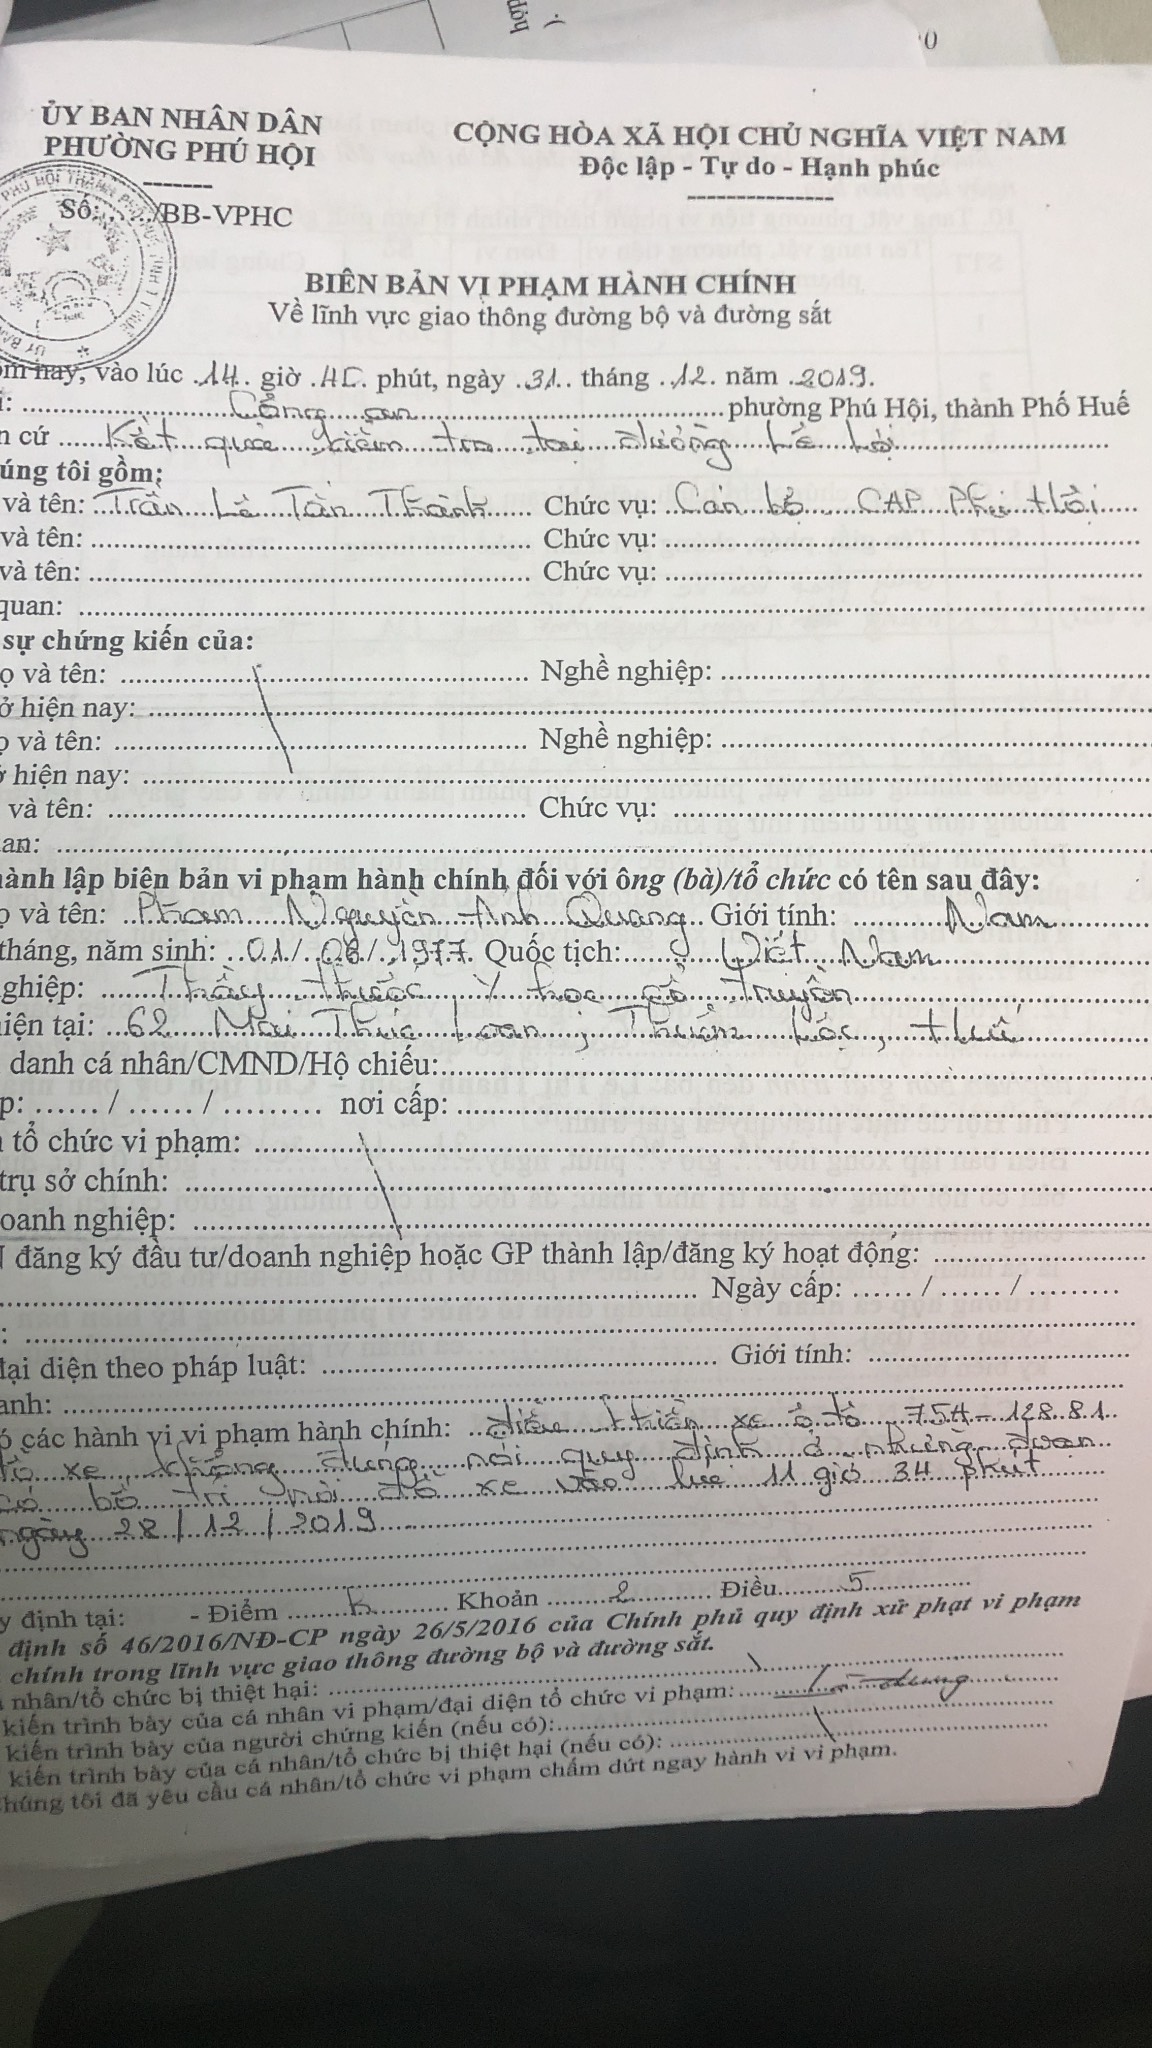 hợp
ỦY BAN NHÂN DÂN
PHƯỜNG PHÚ HỘI
CỘNG HÒA XÃ HỘI CHỦ NGHĨA VIỆT NAM
Độc lập - Tự do - Hạnh phúc
Số: ...../BB-VPHC
BIÊN BẢN VI PHẠM HÀNH CHÍNH
Về lĩnh vực giao thông đường bộ và đường sắt
nay, vào lúc 14 giờ phút, ngày 31 tháng 12 năm 2019.
Công an phường Phú Hội, thành Phố Huế
cứ Kết quả kiểm tra tại đường Lê Lợi
úng tôi gồm:
và tên: Trần Lê Tân Thành Chức vụ: Cán bộ CAP Phú Hội
và tên: Chức vụ:
và tên: Chức vụ:
quan:
sự chứng kiến của:
ọ và tên: Nghề nghiệp:
ở hiện nay:
ọ và tên: Nghề nghiệp:
hiện nay:
và tên: Chức vụ:
an:
ành lập biên bản vi phạm hành chính đối với ông (bà)/tổ chức có tên sau đây:
ọ và tên: Phạm Nguyễn Anh Quang Giới tính: Nam
tháng, năm sinh: 01/08/1977 Quốc tịch: Việt Nam
ghiệp: Thầy thuốc Y học cổ truyền
iện tại: 62 Mai Thúc Loan, Thuận Lộc, Huế
danh cá nhân/CMND/Hộ chiếu:
p: ...... / ...... / ......... nơi cấp:
tổ chức vi phạm:
trụ sở chính:
oanh nghiệp:
đăng ký đầu tư/doanh nghiệp hoặc GP thành lập/đăng ký hoạt động:
Ngày cấp: ...... / ...... / .........
:
đại diện theo pháp luật: Giới tính:
anh:
ó các hành vi vi phạm hành chính: điều khiển xe ô tô 75A-128.81
đỗ xe không đúng nơi quy định ở những đoạn
có bố trí nơi đỗ xe vào lúc 11 giờ 34 phút
ngày 28/12/2019
y định tại: - Điểm k Khoản 2 Điều 5
định số 46/2016/NĐ-CP ngày 26/5/2016 của Chính phủ quy định xử phạt vi phạm
chính trong lĩnh vực giao thông đường bộ và đường sắt.
nhân/tổ chức bị thiệt hại:
kiến trình bày của cá nhân vi phạm/đại diện tổ chức vi phạm:
kiến trình bày của người chứng kiến (nếu có):
kiến trình bày của cá nhân/tổ chức bị thiệt hại (nếu có):
húng tôi đã yêu cầu cá nhân/tổ chức vi phạm chấm dứt ngay hành vi vi phạm.